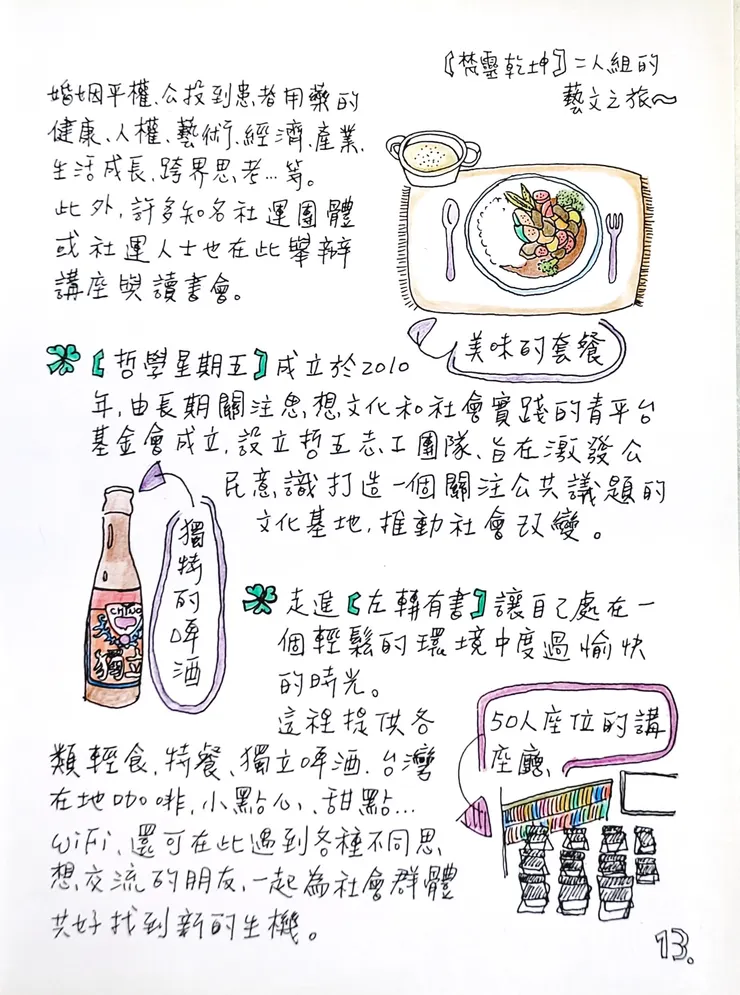 【梵靈乾坤】二人組的
藝文之旅~
婚姻平權、公投到患者用藥的
健康、人權、藝術、經濟、產業、
生活成長、跨界思考…等。
此外,許多知名社運團體
或社運人士也在此舉辦
講座與讀書會。
美味的套餐
【哲學星期五】成立於2010
年,由長期關注思想文化和社會實踐的青平台
基金會成立,設立哲五志工團隊、旨在激發公
民意識打造一個關注公共議題的
文化基地,推動社會改變。
獨特的啤酒
獨立
走進【左轉有書】讓自己處在一
個輕鬆的環境中度過愉快
的時光。
這裡提供各
類輕食、特餐、獨立啤酒、台灣
在地咖啡、小點心、甜點…
WiFi、還可在此遇到各種不同思
想交流的朋友,一起為社會群體
共好找到新的生機。
50人座位的講
座廳、
13。